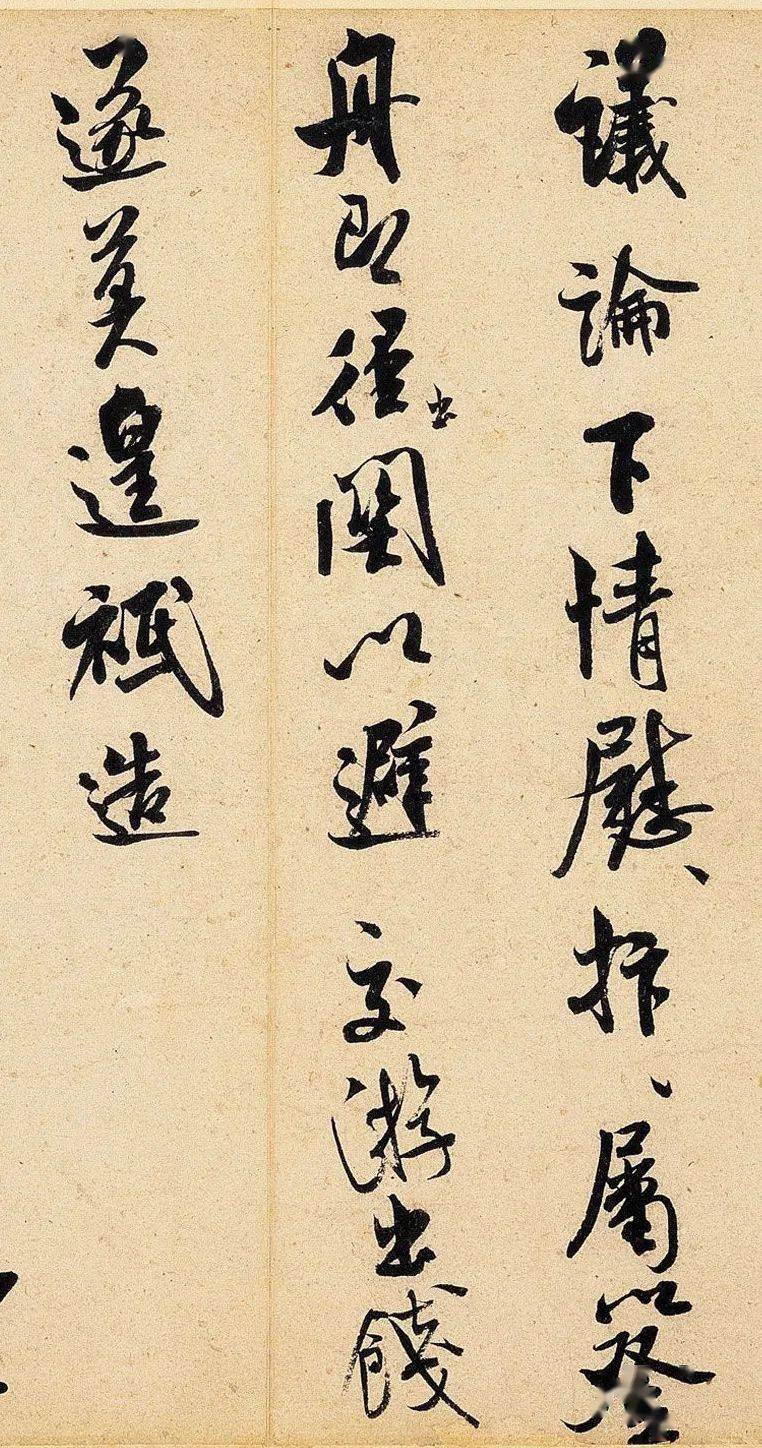 議論下情慰、抃、屬以登
舟即徑出關以避交游出餞
遂莫遑祗造